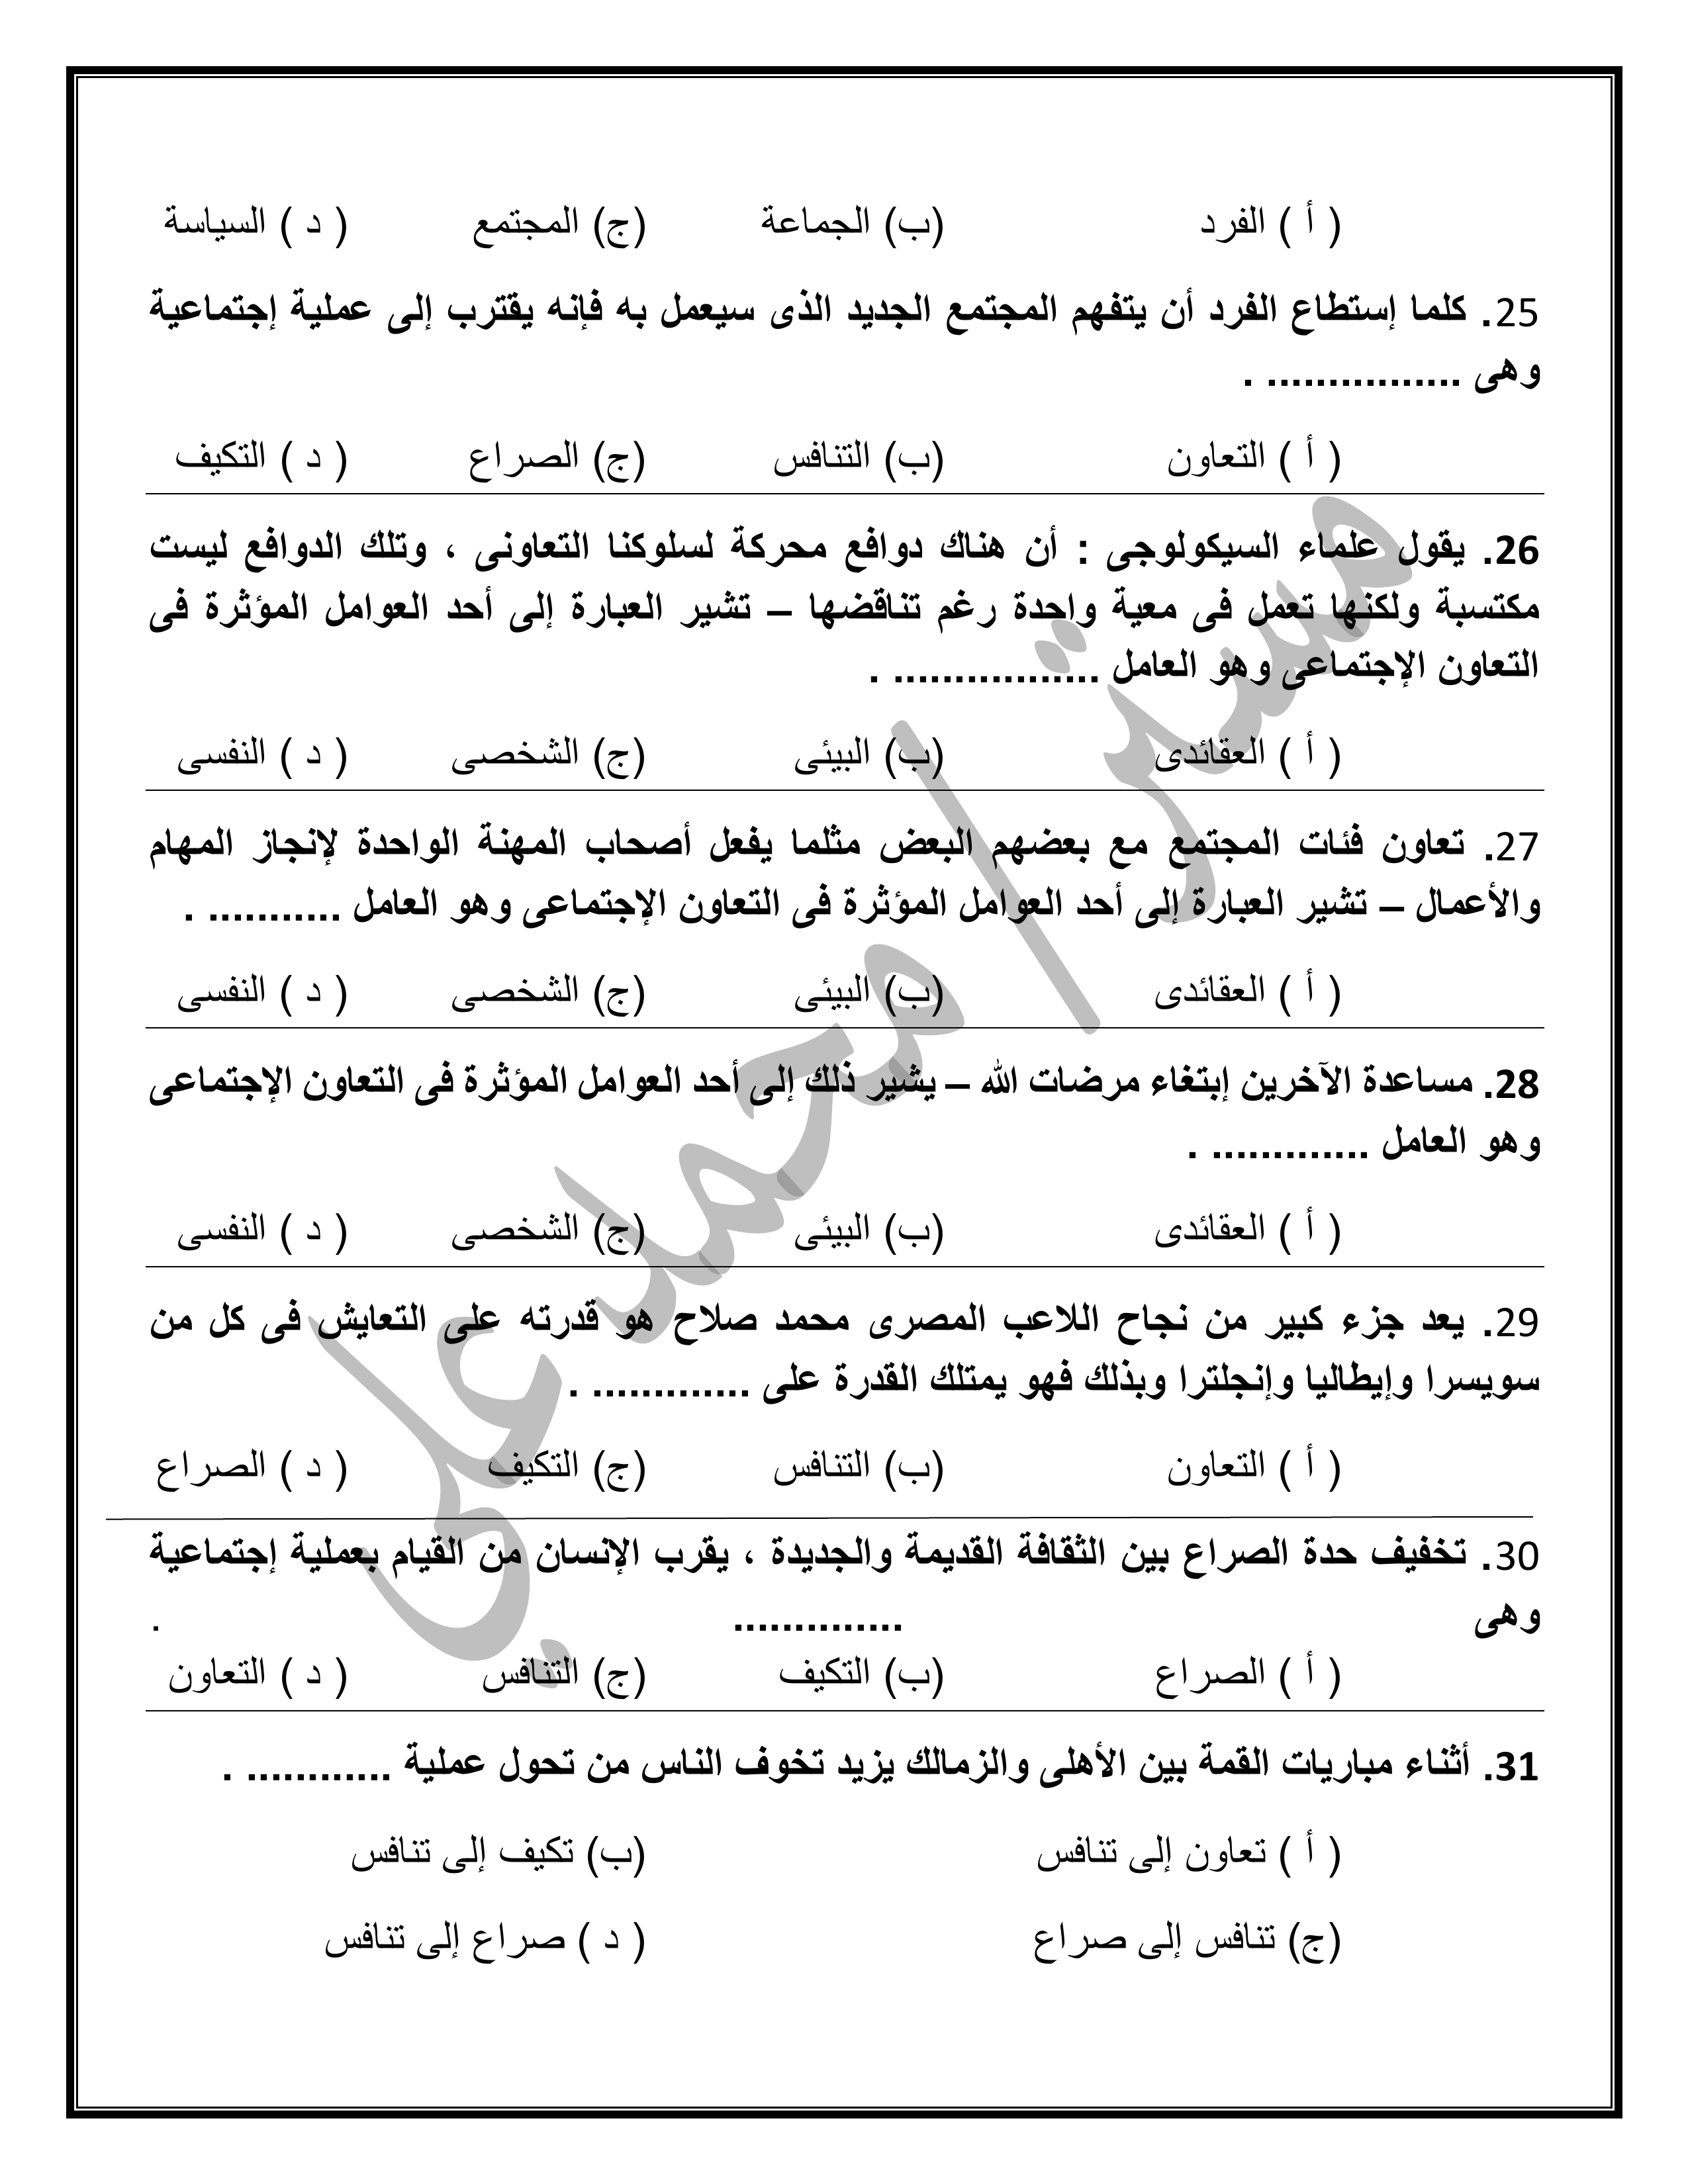 ( أ ) الفرد (ب) الجماعة (ج) المجتمع ( د ) السياسة
25. كلما إستطاع الفرد أن يتفهم المجتمع الجديد الذى سيعمل به فإنه يقترب إلى عملية إجتماعية
وهى ................ .
( أ ) التعاون (ب) التنافس (ج) الصراع ( د ) التكيف
26. يقول علماء السيكولوجى : أن هناك دوافع محركة لسلوكنا التعاونى ، وتلك الدوافع ليست
مكتسبة ولكنها تعمل فى معية واحدة رغم تناقضها – تشير العبارة إلى أحد العوامل المؤثرة فى
التعاون الإجتماعى وهو العامل ................. .
( أ ) العقائدى (ب) البيئى (ج) الشخصى ( د ) النفسى
27. تعاون فئات المجتمع مع بعضهم البعض مثلما يفعل أصحاب المهنة الواحدة لإنجاز المهام
والأعمال – تشير العبارة إلى أحد العوامل المؤثرة فى التعاون الإجتماعى وهو العامل ........... .
( أ ) العقائدى (ب) البيئى (ج) الشخصى ( د ) النفسى
28. مساعدة الآخرين إبتغاء مرضات الله – يشير ذلك إلى أحد العوامل المؤثرة فى التعاون الإجتماعى
وهو العامل ............. .
( أ ) العقائدى (ب) البيئى (ج) الشخصى ( د ) النفسى
29. يعد جزء كبير من نجاح اللاعب المصرى محمد صلاح هو قدرته على التعايش فى كل من
سويسرا وإيطاليا وإنجلترا وبذلك فهو يمتلك القدرة على ............. .
( أ ) التعاون (ب) التنافس (ج) التكيف ( د ) الصراع
30. تخفيف حدة الصراع بين الثقافة القديمة والجديدة ، يقرب الإنسان من القيام بعملية إجتماعية
وهى .............. .
( أ ) الصراع (ب) التكيف (ج) التنافس ( د ) التعاون
31. أثناء مباريات القمة بين الأهلى والزمالك يزيد تخوف الناس من تحول عملية ............ .
( أ ) تعاون إلى تنافس (ب) تكيف إلى تنافس
(ج) تنافس إلى صراع ( د ) صراع إلى تنافس
مستر / محمد علي